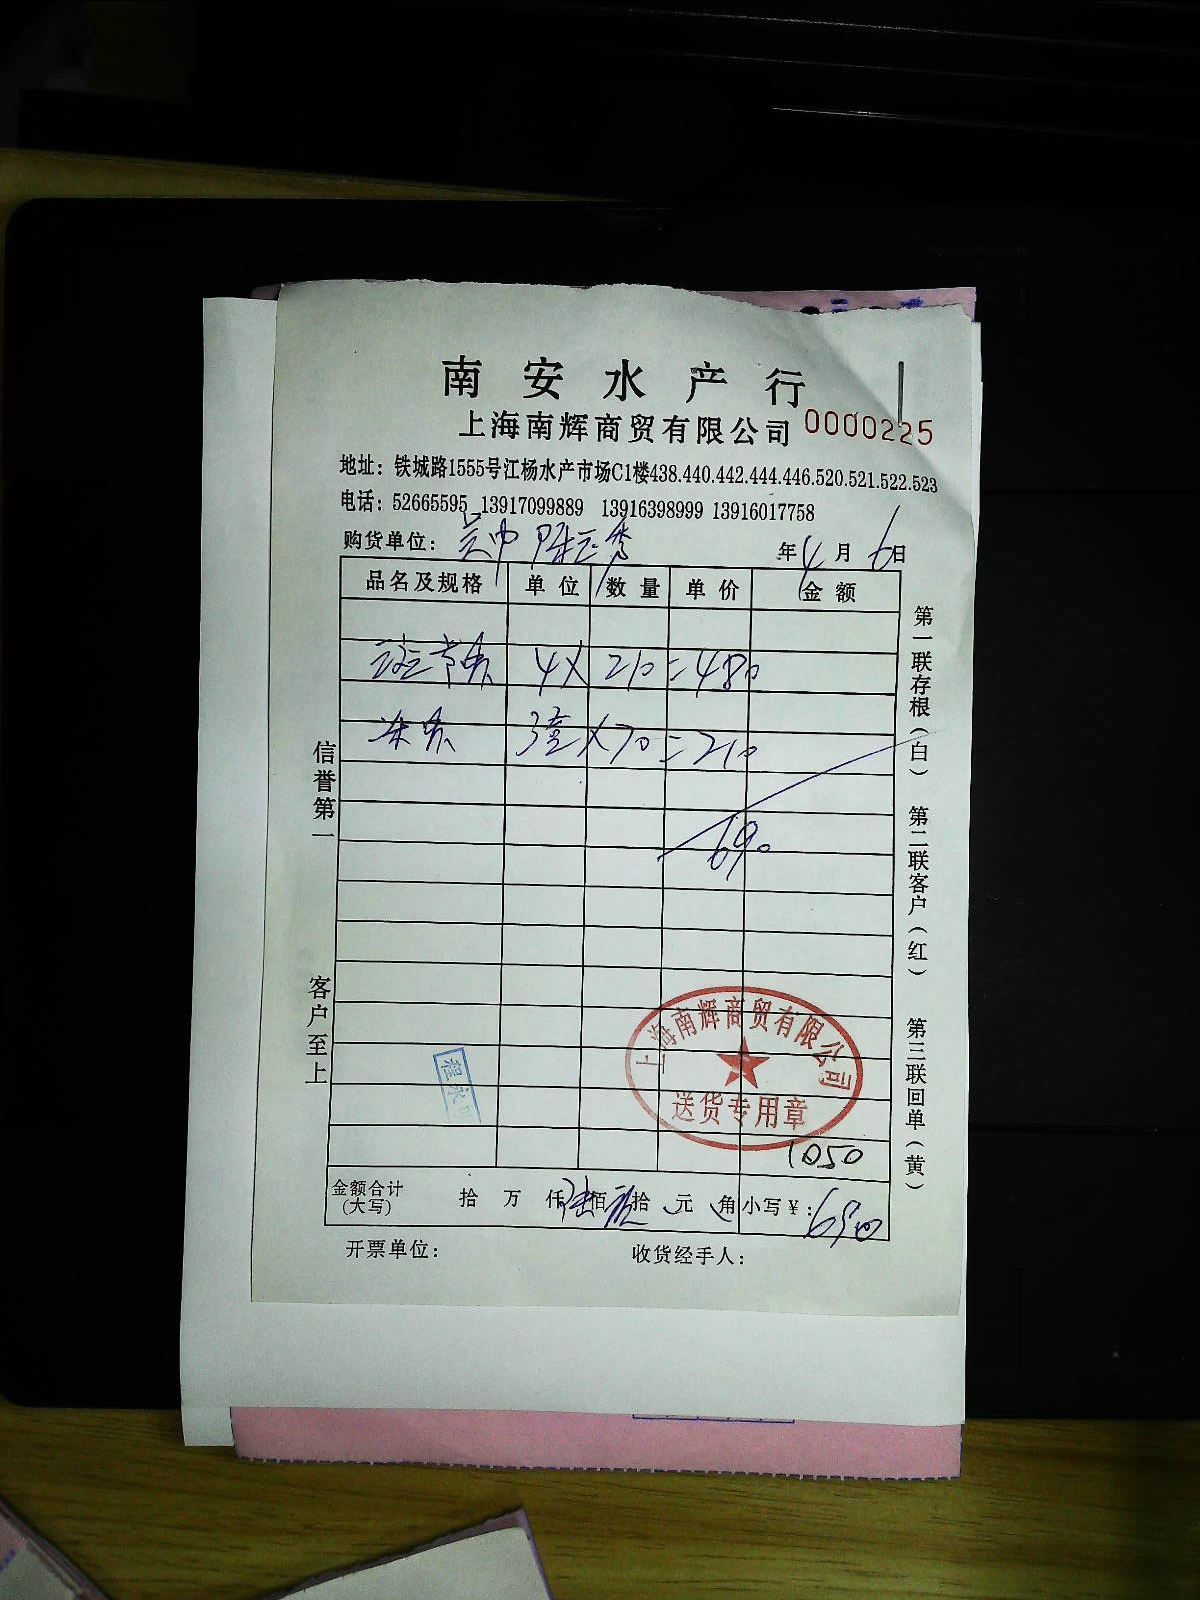 南安水产行
上海南辉商贸有限公司 0000225
地址：铁城路1555号江杨水产市场C1楼438.440.442.444.446.520.521.522.523
电话：52665595 13917099889 13916398999 13916017758
购货单位： 年4月6日
品名及规格 单位 数量 单价 金额
4X 210=480
3 X70=210
690
信誉第一
客户至上
第一联存根（白） 第二联客户（红） 第三联回单（黄）
上海南辉商贸有限公司
送货专用章
程永
1050
金额合计（大写） 拾 万 仟陆佰 拾 元 角 小写￥：690
开票单位： 收货经手人：